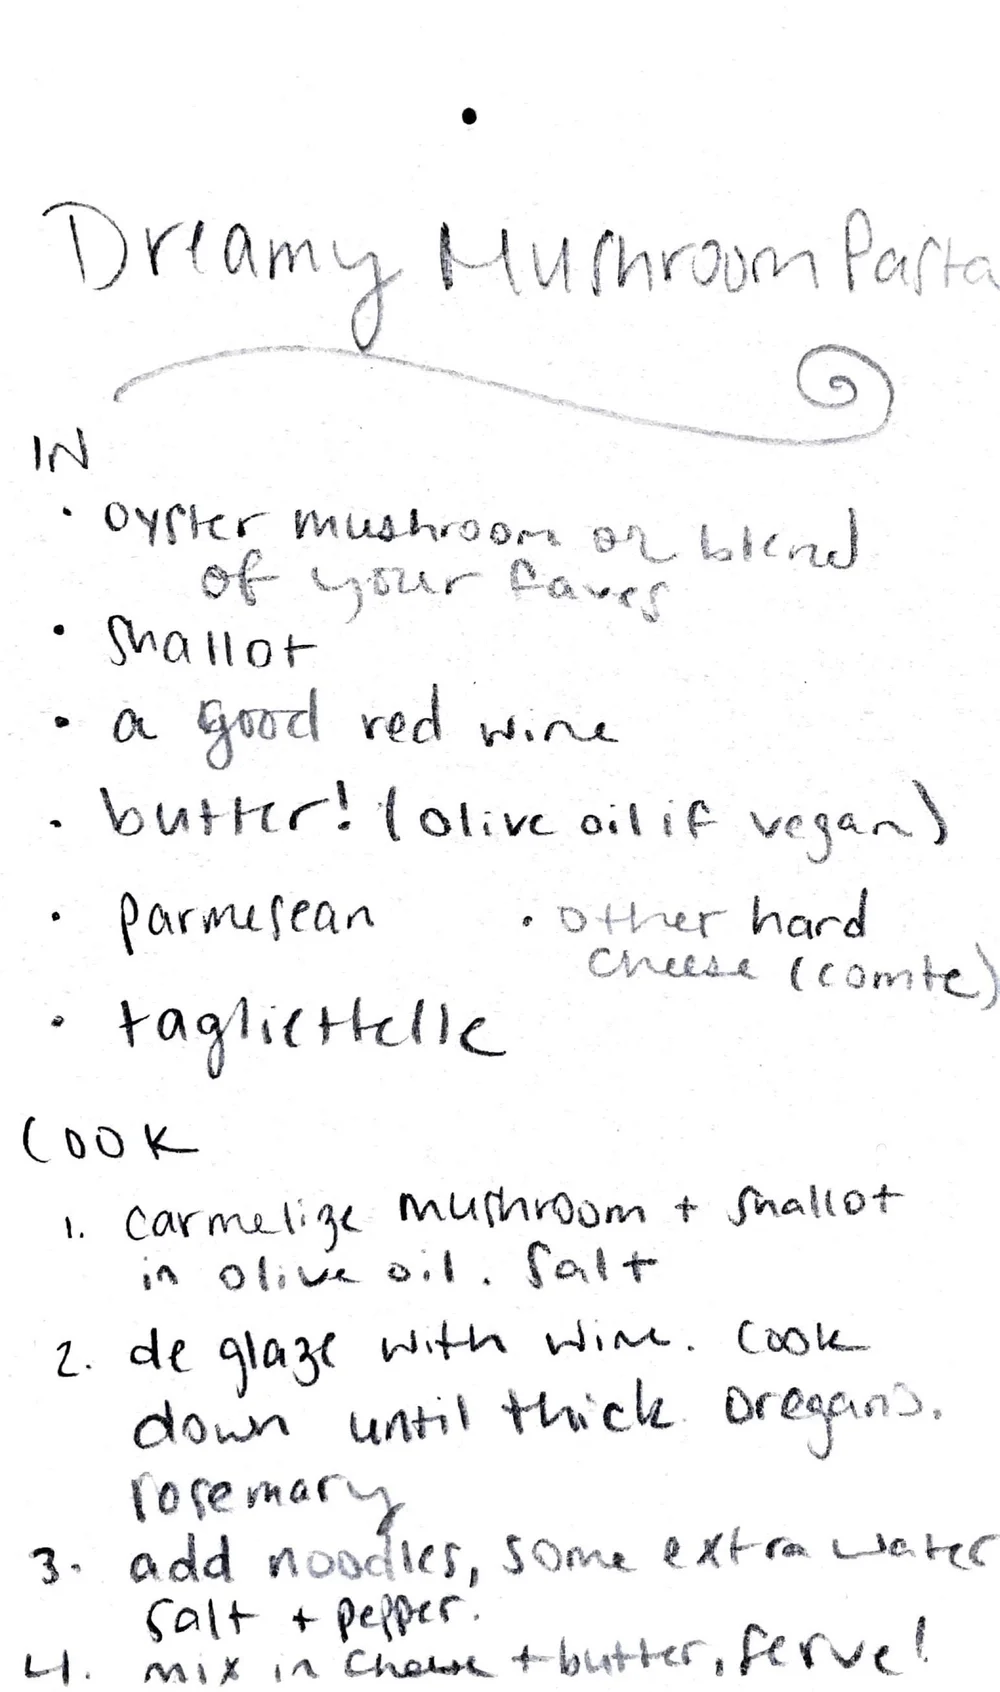 Dreamy Mushroom Pasta
IN
• oyster mushroom or blend
of your faves
• shallot
• a good red wine
• butter! (olive oil if vegan)
• parmesean • other hard
cheese (comte)
• tagliettelle
COOK
1. carmelize mushroom + shallot
in olive oil. Salt
2. de glaze with wine. Cook
down until thick. oregano.
rosemary
3. add noodles, some extra water
salt + pepper.
4. mix in cheese + butter, serve!